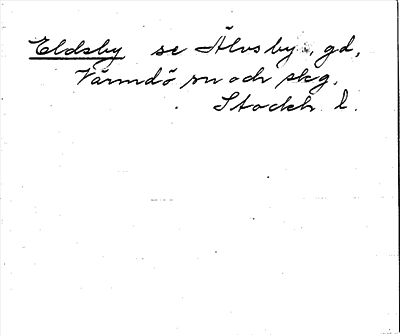 Eldsby se Älvsby, gd,
Värmdö sn och skg,
Stockh. l.